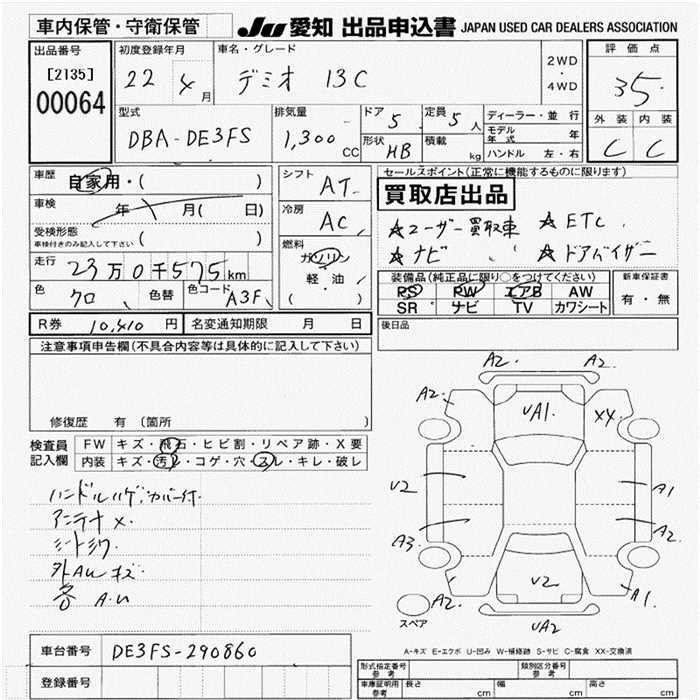 車内保管・守衛保管
JU 愛知 出品申込書 JAPAN USED CAR DEALERS ASSOCIATION
出品番号
[2135]
00064
初度登録年月
22 4月
車名・グレード
デミオ 13C
2WD
・
4WD
評価点
3.5
外装 内装
C C
型式
DBA-DE3FS
排気量
1,300CC
ドア 5
定員 5人
形状 HB
積載 kg
ディーラー・並行
モデル年式 年
ハンドル 左・右
車歴
自家用・( )
車検
年 月( 日)
受検形態
車検付きのみ記入して下さい ( )
走行
23万0千575km
色
クロ
色替
色コード A3F
シフト
AT
冷房
AC
燃料
ガソリン
軽油
( ・ )
セールスポイント(正常に機能するものに限ります)
買取店出品
☆ユーザー買取車 ☆ETC
☆ナビ ☆ドアバイザー
装備品(純正品に限り○をつけてください)
PS PW エアB AW
SR ナビ TV カワシート
新車保証書
有・無
R券 10,410円
名変通知期限 月 日
後日品
注意事項申告欄(不具合内容等は具体的に記入して下さい)
修復歴 有 〔箇所 〕
検査員
記入欄
FW キズ・飛石・ヒビ割・リペア跡・X要
内装 キズ・汚レ・コゲ・穴・スレ・キレ・破レ
ハンドルハゲ、カバー付.
アンテナ×.
シートシワ.
外AUキズ.
各A.U
A2. A2.
A2. UA1. XX.
U2 A1
A3. A2.
A2. U2 A1.
スペア UA2
A-キズ E-エクボ U-凹み W-補修跡 S-サビ C-腐食 XX-交換済
車台番号 DE3FS-290860
登録番号
形式指定番号
参考
類別区分番号
参考
車庫証明用
参考
長さ cm 幅 cm 高さ cm